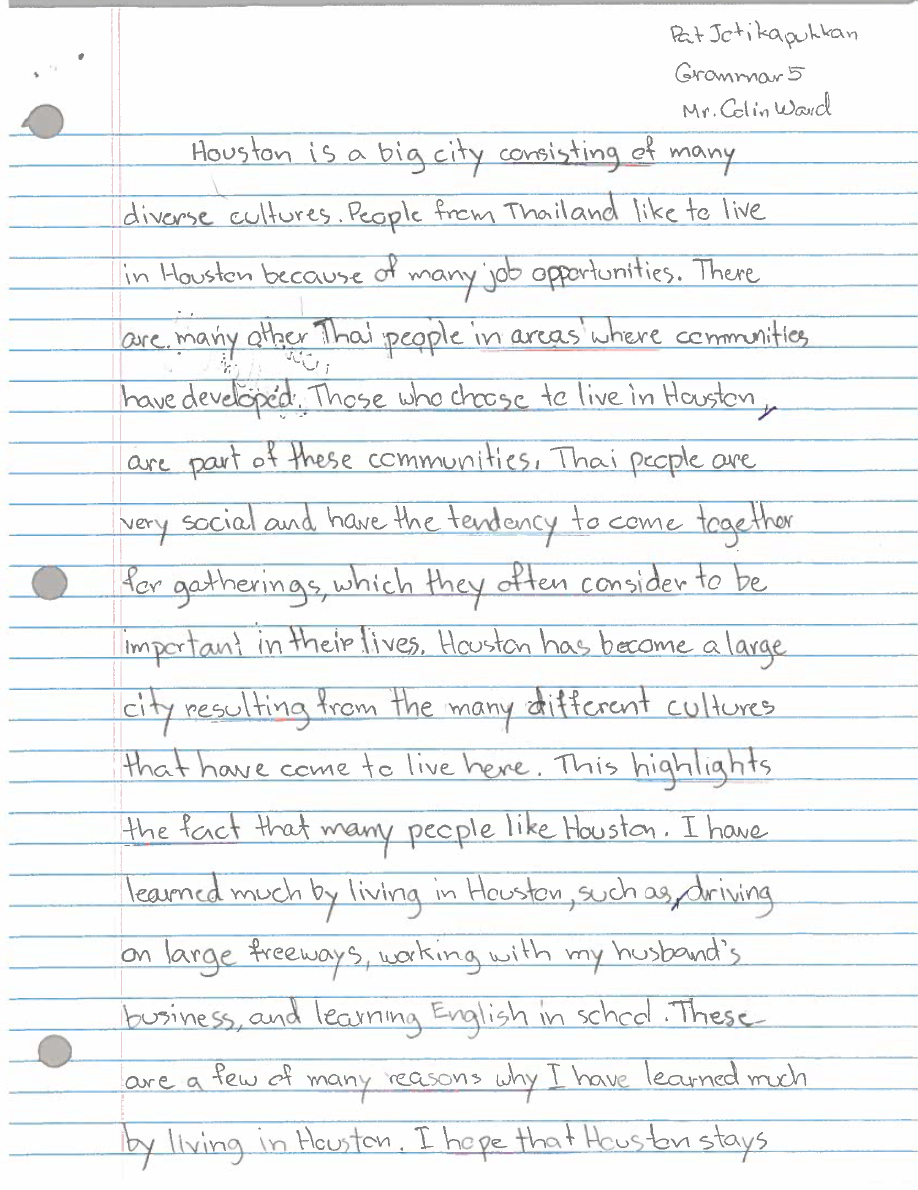 Pat Jotikapukkan
Grammar 5
Mr. Colin Ward
Houston is a big city consisting of many
diverse cultures. People from Thailand like to live
in Houston because of many job opportunities. There
are many other Thai people in areas where communities
have developed. Those who choose to live in Houston,
are part of these communities. Thai people are
very social and have the tendency to come together
for gatherings, which they often consider to be
important in their lives. Houston has become a large
city resulting from the many different cultures
that have come to live here. This highlights
the fact that many people like Houston. I have
learned much by living in Houston, such as, driving
on large freeways, working with my husband's
business, and learning English in school. These
are a few of many reasons why I have learned much
by living in Houston. I hope that Houston stays